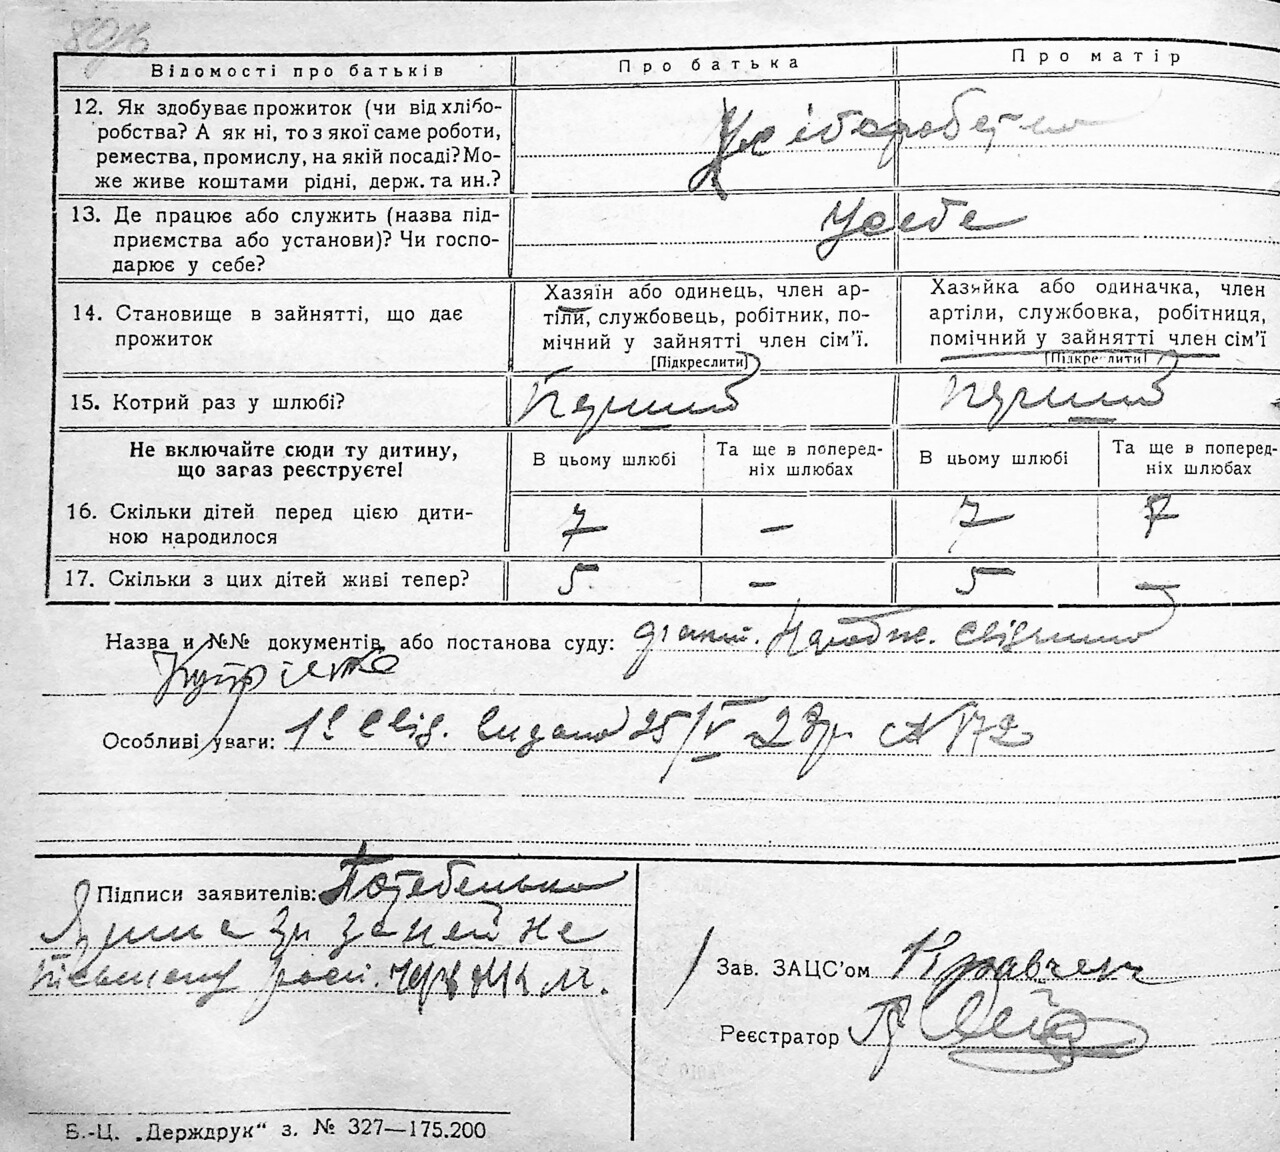 Відомості про батьків
Про батька
Про матір
12. Як здобуває прожиток (чи від хлібо-
робства? А як ні, то з якої саме роботи,
ремества, промислу, на якій посаді? Мо-
же живе коштами рідні, держ. та ин.?
13. Де працює або служить (назва під-
приємства або установи)? Чи госпо-
дарює у себе?
У себе
14. Становище в зайнятті, що дає
прожиток
Хазяїн або одинець, член ар-
тіли, службовець, робітник, по-
мічний у зайнятті член сім'ї.
[Підкреслити]
Хазяйка або одиначка, член
артіли, службовка, робітниця,
помічний у зайнятті член сім'ї
[Підкреслити]
15. Котрий раз у шлюбі?
Перший
Перший
Не включайте сюди ту дитину,
що загаз реєструєте!
В цьому шлюбі
Та ще в поперед-
ніх шлюбах
В цьому шлюбі
Та ще в поперед-
ніх шлюбах
16. Скільки дітей перед цією дити-
ною народилося
7
–
7
17. Скільки з цих дітей живі тепер?
5
–
5
–
Назва и №№ документів, або постанова суду:
Особливі уваги: Свід. видано 25/IV 28р. № 172
Підписи заявителів: Потебенько
Зав. ЗАЦС'ом Кравчен
Реєстратор
Б.-Ц. „Держдрук“ з. № 327—175.200